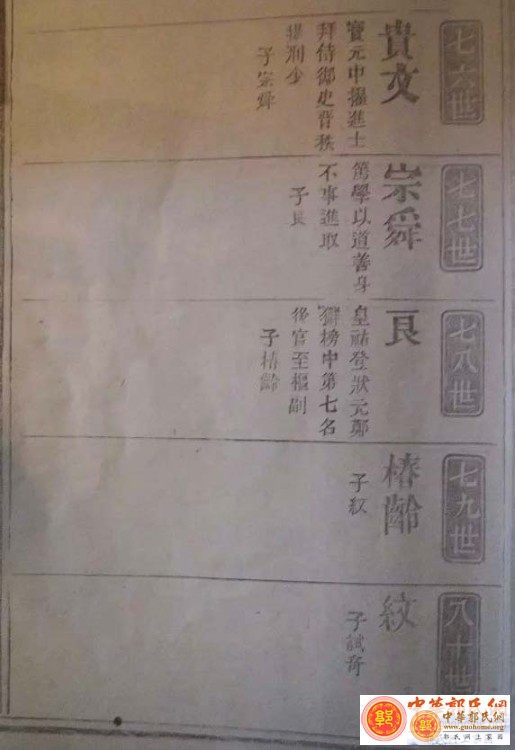 七六世
貴文
寳元中擢進士
拜侍御史晉秩
少
子宗舜
七七世
宗舜
篤學以道善身
不事進取
子良
七八世
良
皇祐登狀元鄭
獬榜中第七名
後官至樞副
子椿齡
七九世
椿齡
子紋
八十世
紋
子試奇
中華郭氏網
中華郭氏網
www.guohome.org
郭氏網上家園